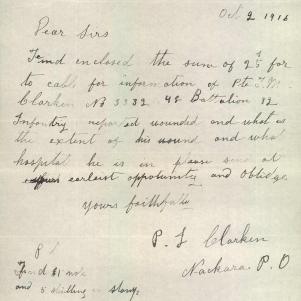 Oct 2 1916
Dear Sirs
Find enclosed the sum of 25/- for
to cable for information of Pte
Clarken No 3332 48 Battalion 12
Infantry reported wounded and what is
the extent of his wound and what
hospital he is in please send at
earliest opportunity and Oblidge
Yours faithfully
P. J Clarken
Nackara P.O
Find £1 note
and 5 shilling in stamps